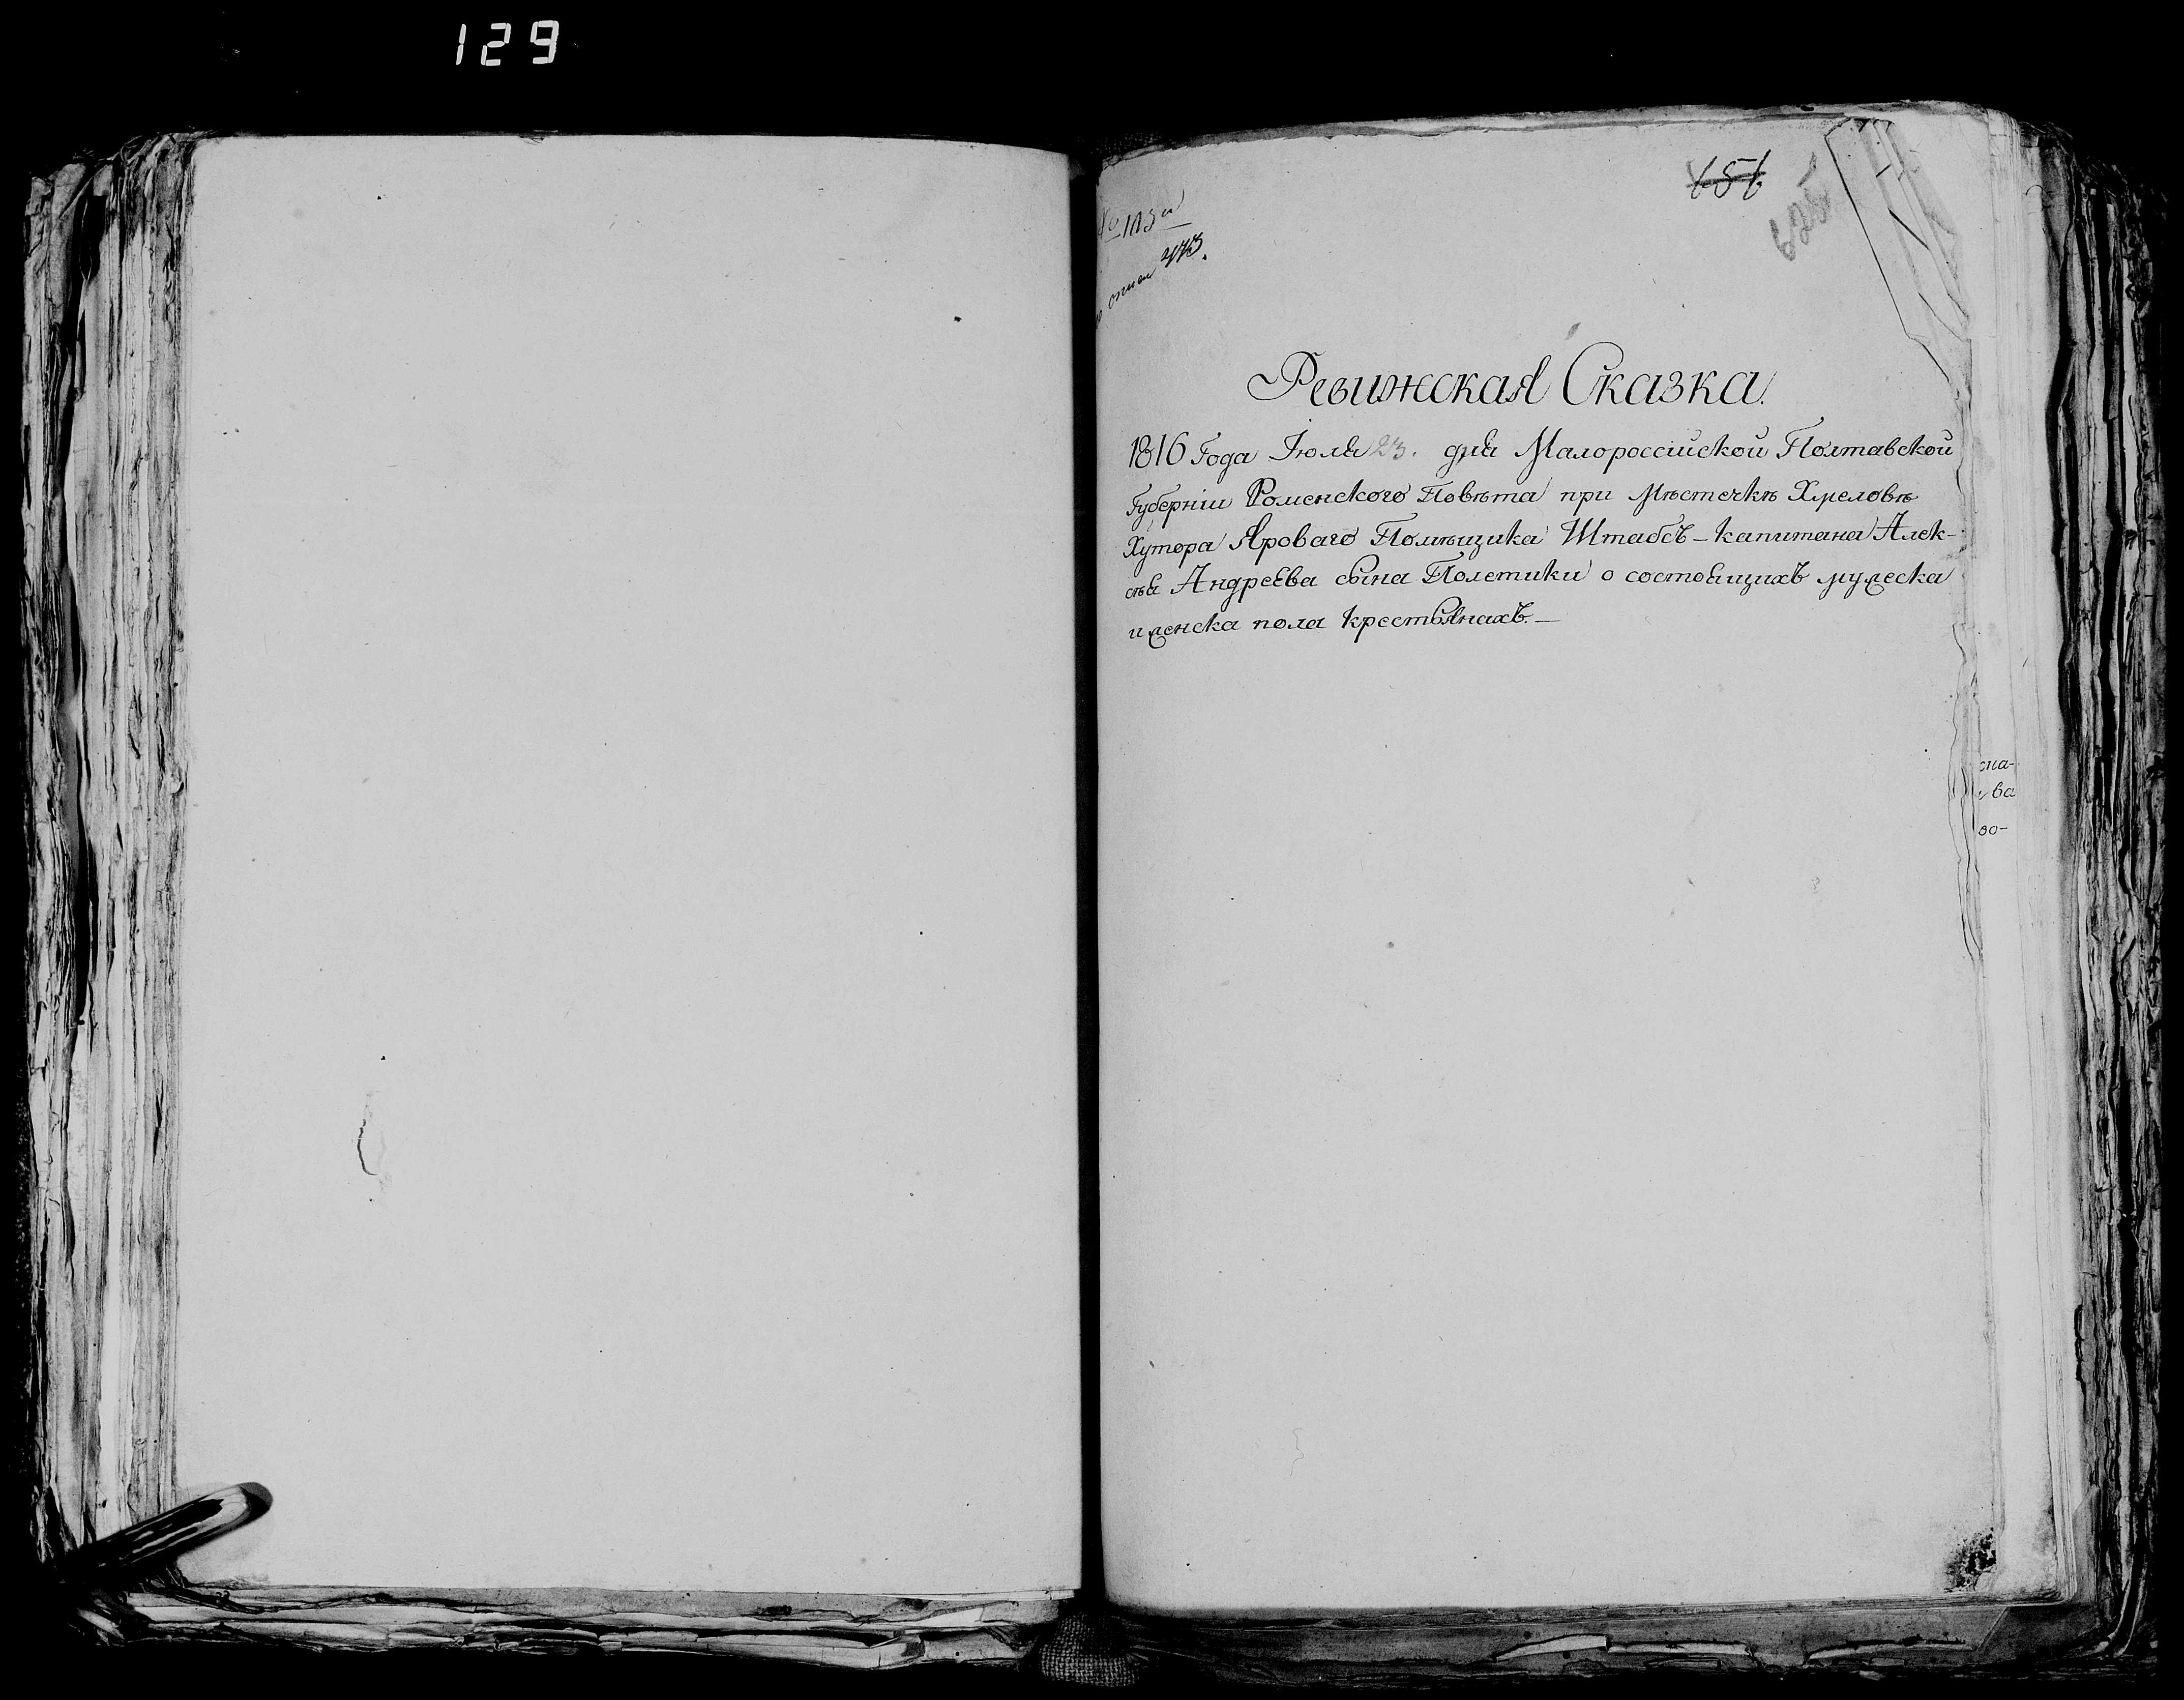 129
651
625
№ 113й
273.
Ревижская Сказка.
1816 Года Іюля 23. дня Малороссійской Полтавской
Губерніи Роменского Повѣта при Мѣстечкѣ Хмеловѣ
Хутора Яроваго Помѣщика Штабсъ-Капитана Алек-
сѣя Андреева сына Полетики о состоящихъ мужеска
и женска пола крестьянахъ.—
ва